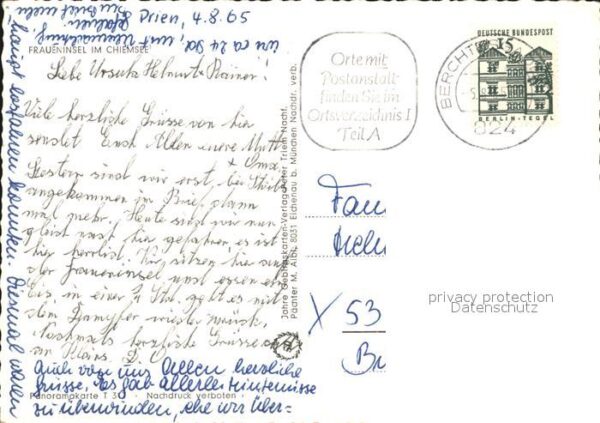 Prien, 4.8.65
FRAUENINSEL IM CHIEMSEE
Liebe Ursula Helmut + Rainer!
Viele herzliche Grüsse von hier
sendet Euch Allen eure Mutti
+ Oma.
Gestern sind wir erst bei
angekommen im Brief dann
mal mehr. Heute sind wir nun
gleich nach hier gefahren, es ist
hier herrlich. Wir sitzen hier auf
der Fraueninsel und essen
bis in einer St. geht es mit
dem Dampfer wieder zurück.
Nochmals herzliche Grüsse
an Klaus. D. O.
Auch von uns Allen herzliche
Grüsse. Es gab allerlei Hindernisse
zu überwinden, ehe wir über=
haupt losfahren konnten. Diesmal waren
Panoramakarte T 3 · Nachdruck verboten ·
Jahre Gebirgskarten-Verlag Peter Triem Nachf.
Paanter M. Aibl, 8031 Eichenau b. München Nachdr. verb.
Orte mit
Postanstalt
finden Sie im
Ortsverzeichnis I
Teil A
BERCHT
824
DEUTSCHE BUNDESPOST
15
BERLIN-TEGEL
Fam
X 53
privacy protection
Datenschutz